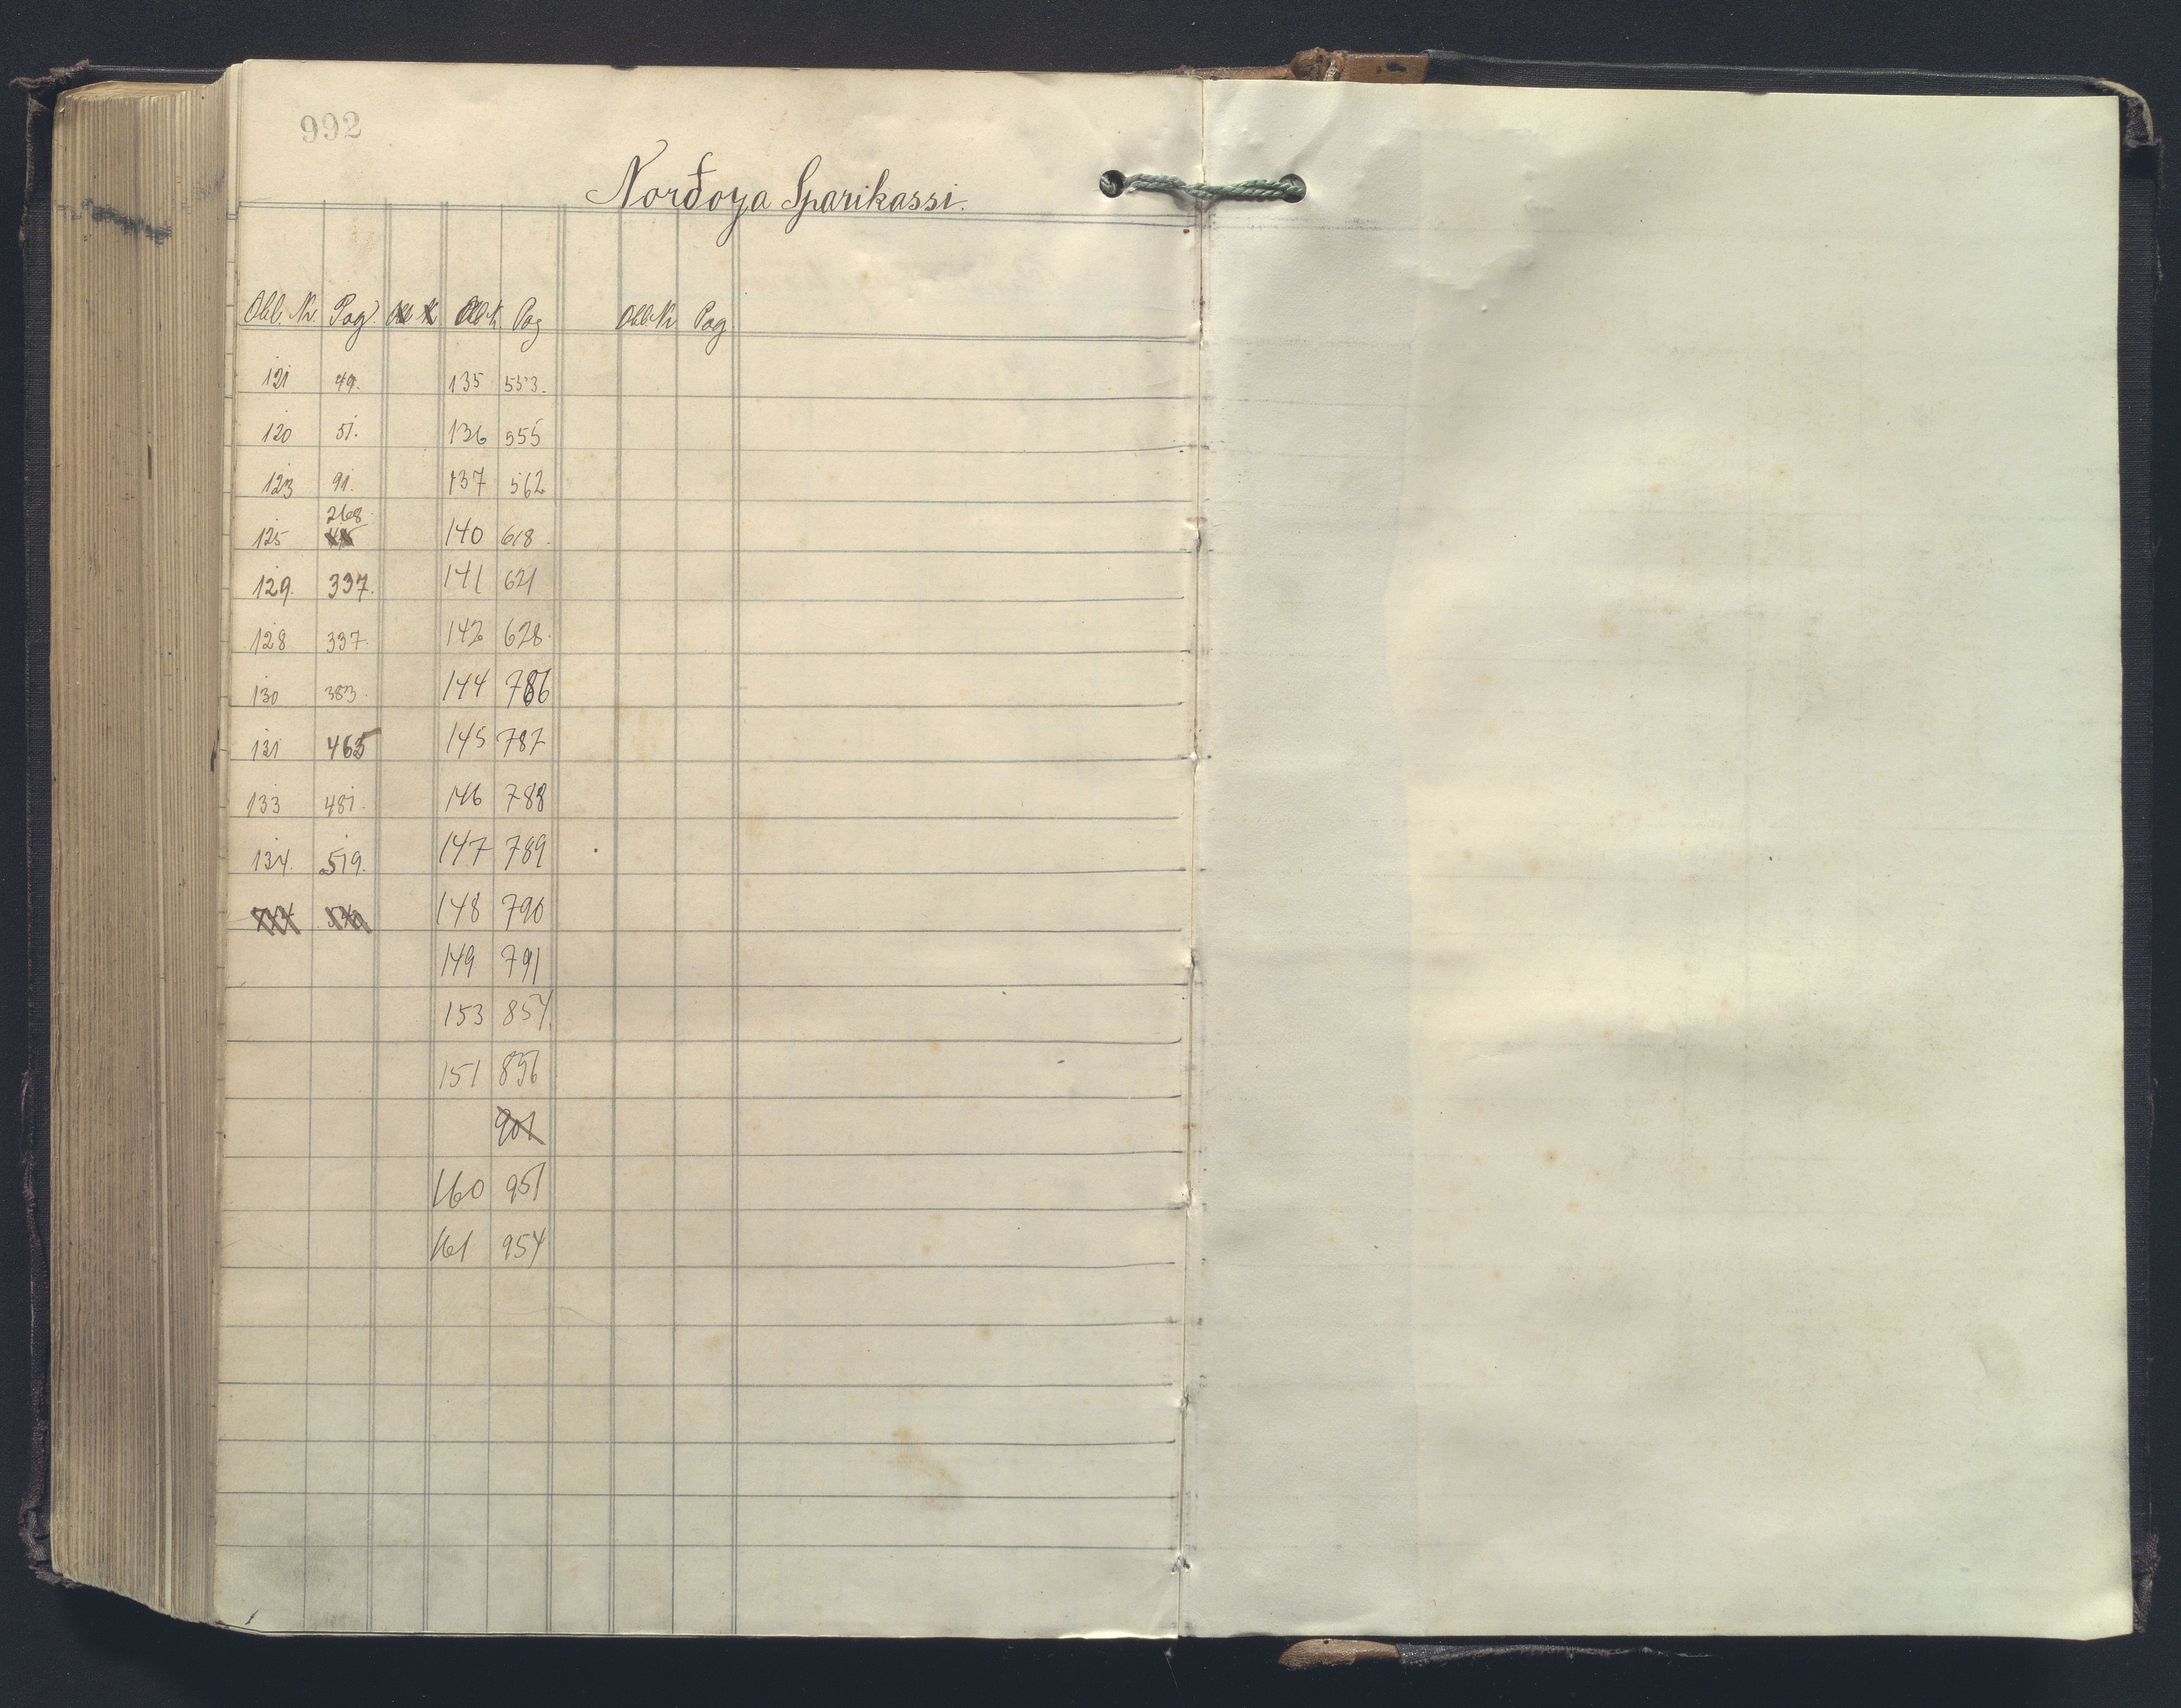 992
Norđoya Sparikassi.
Obl. Nr Pag. Obl. Nr Pag Obl. Nr Pag
121 49. 135 553.
120 51. 136 555
123 91. 137 562
268
125 140 618.
129. 337. 141 621
128 337. 142 628.
130 383. 144 786
131 465 145 787
133 481. 146 788
134. 519. 147 789
148 790
149 791
153 854.
151 856
901
160 951
161 954